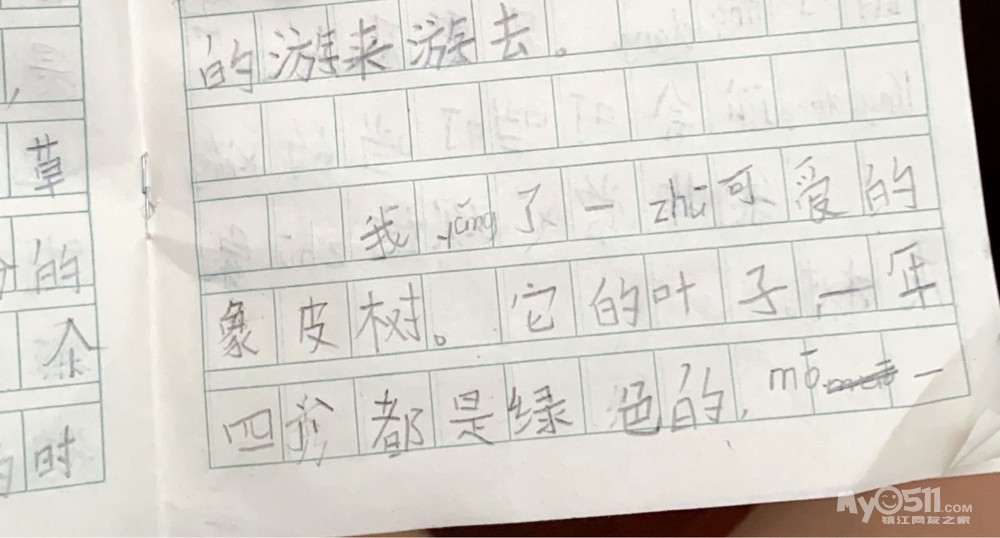 的游来游去。
我yǎng了一zhū可爱的
象皮树。它的叶子,一年
四
都是绿色的,mō一
,
草
的
个
时
My0511.COM
镇江网友之家